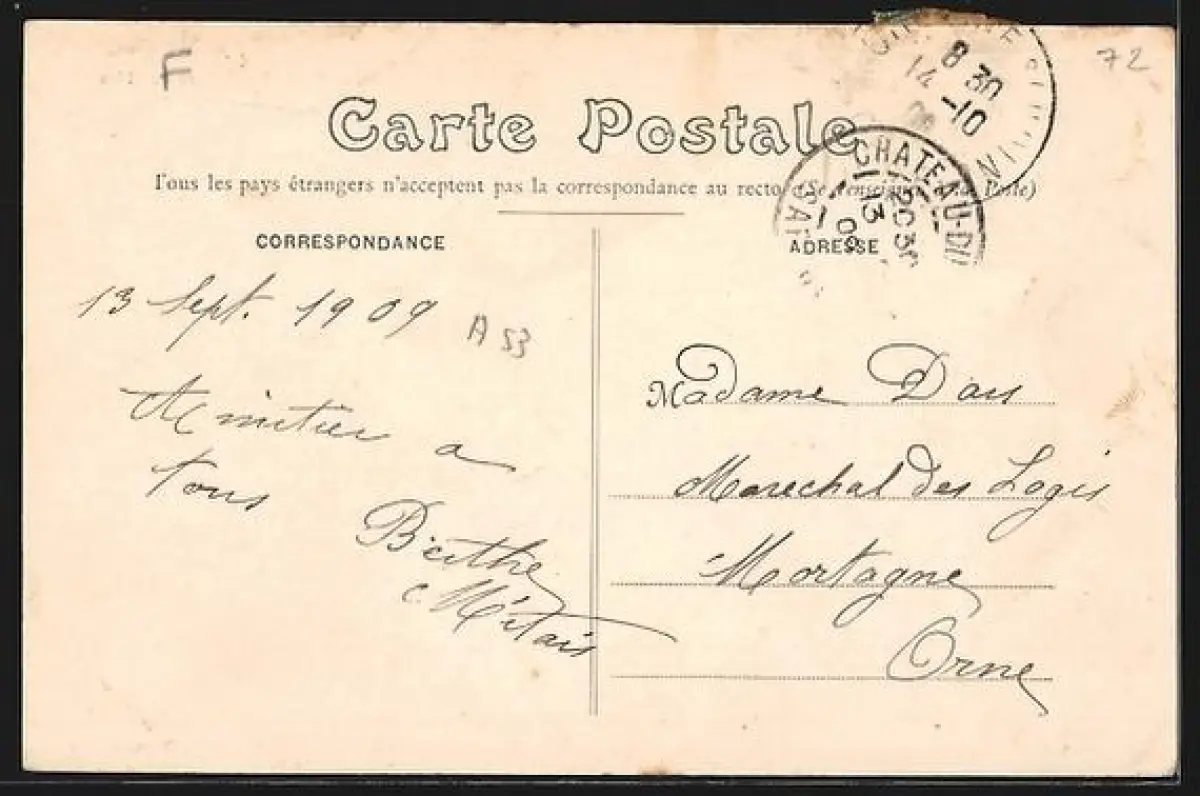 F
72
8 30
14 -10
Carte Postale
CHATEAU-DU
SAR
20 30
13
09
Tous les pays étrangers n'acceptent pas la correspondance au recto (Se renseigner à la Poste)
CORRESPONDANCE
ADRESSE
13 Sept. 1909
A 53
Amitiés a
tous
Berthe
Métais
Madame Dars
Marechal des Logis
Mortagne
Orne